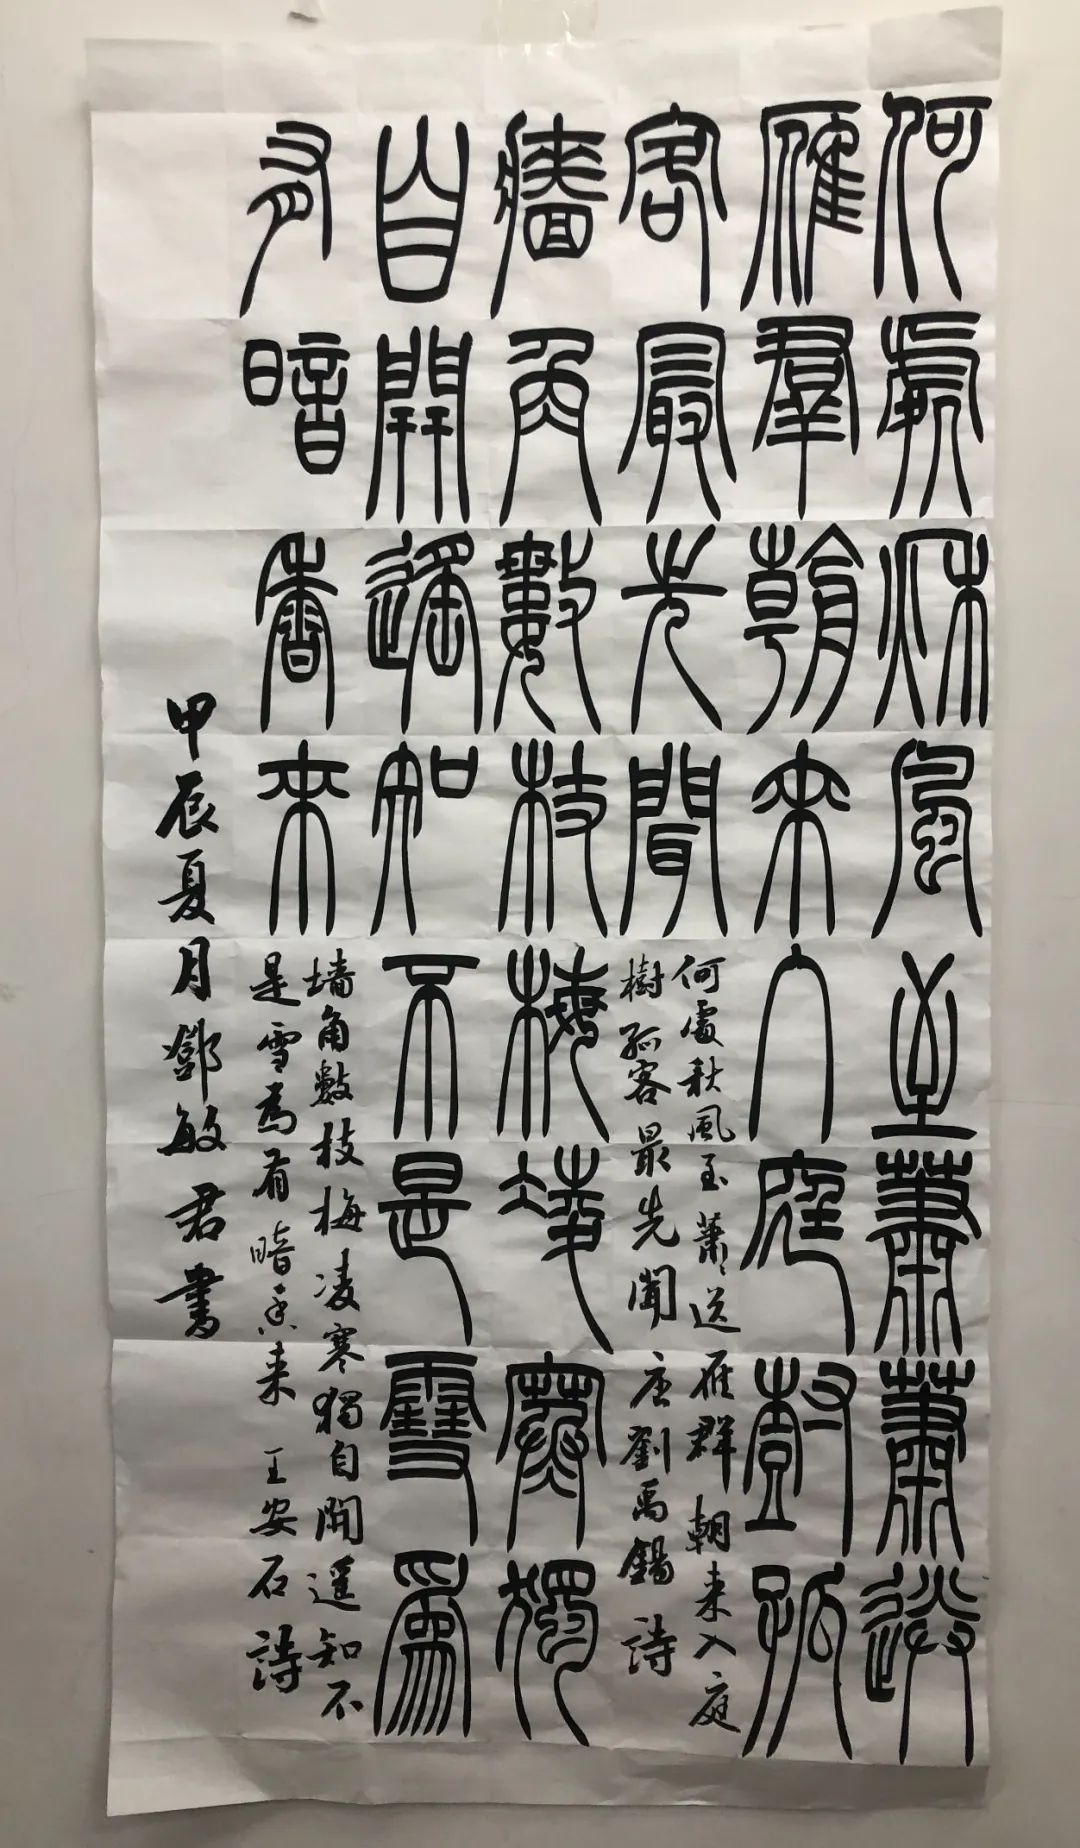 何處秋風至蕭蕭送
雁羣朝來入庭樹孤
客最先聞
何處秋風至蕭蕭送雁群朝来入庭
樹孤客最先聞 唐劉禹錫詩
牆角數枝梅凌寒獨
自開遥知不是雪為
有暗香來
墙角數枝梅凌寒獨自開遥知不
是雪為有暗香来 王安石詩
甲辰夏月鄧敏君書